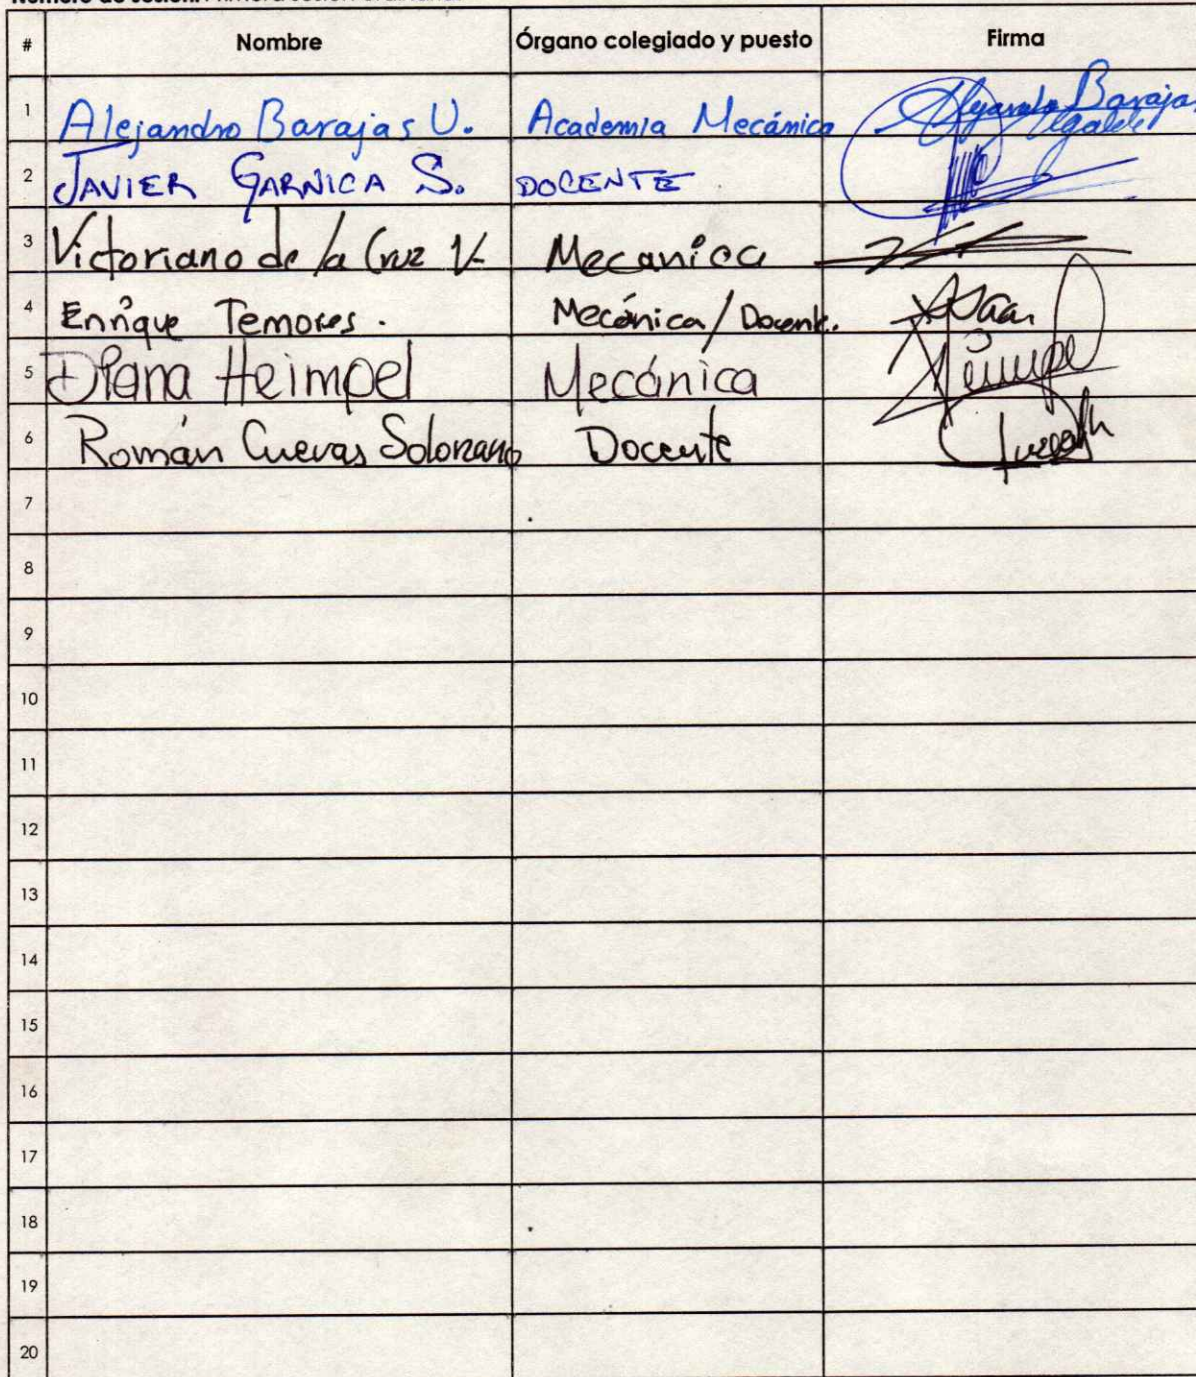 Número de sesión: Primera sesión ordinaria.
# Nombre Órgano colegiado y puesto Firma
1 Alejandro Barajas U. Academia Mecánica Alejandro Barajas Ugalde
2 JAVIER GARNICA S. DOCENTE
3 Victoriano de la Cruz V. Mecanica
4 Enrique Temores. Mecánica/Docente.
5 Diana Heimpel Mecánica Heimpel
6 Román Cuevas Solorzano Docente
7
8
9
10
11
12
13
14
15
16
17
18
19
20